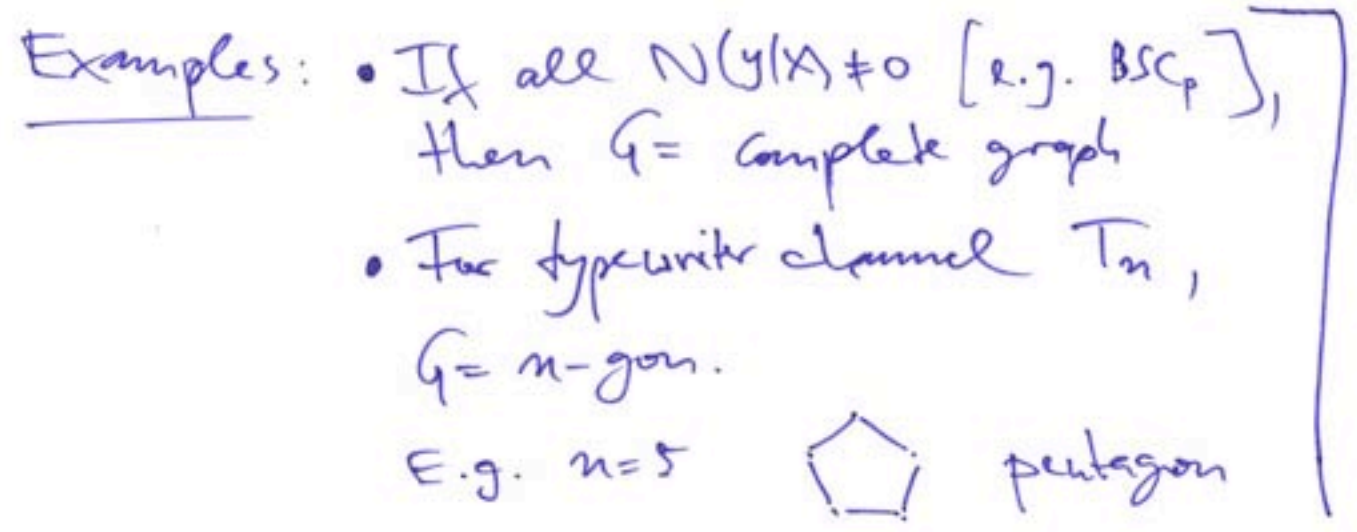 Examples: • If all N(y|x) ≠ 0 [e.g. BSCp],
then G = complete graph
• For typewriter channel Tn,
G = n-gon.
E.g. n=5 pentagon